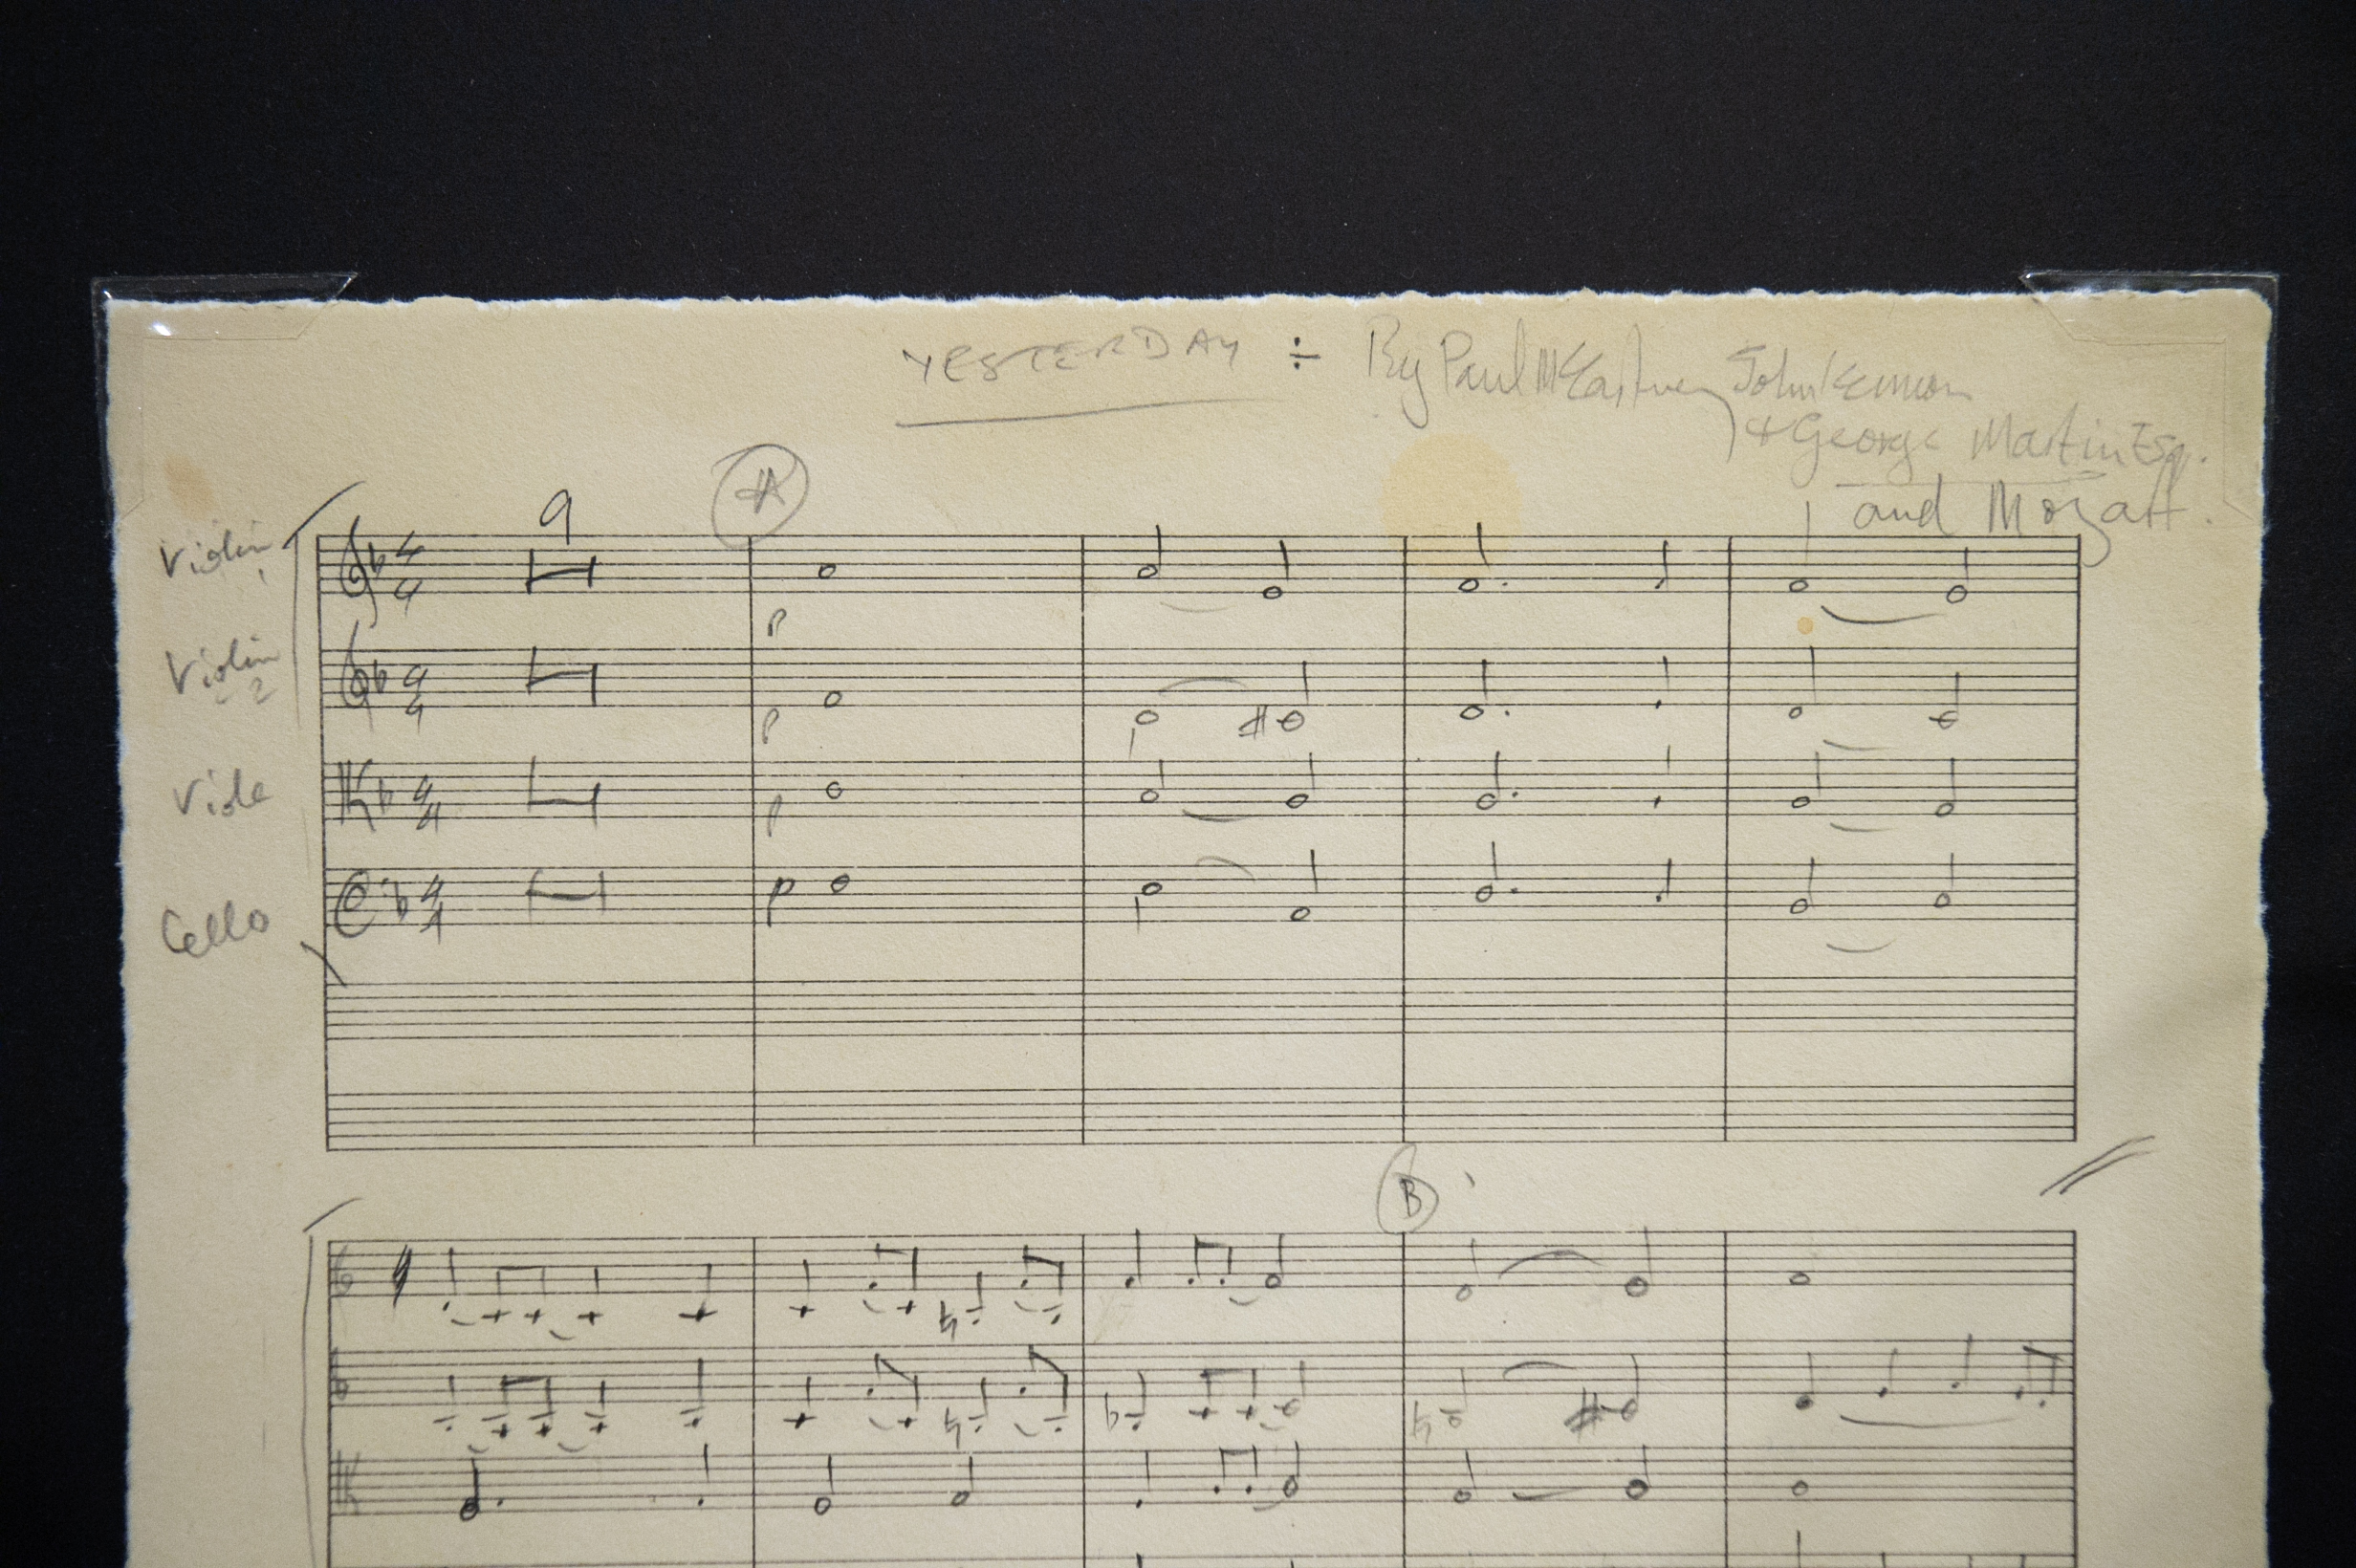 YESTERDAY ÷ By Paul McCartney John Lennon
+ George Martin Esq.
and Mozart.
A
9
Violin 1
p
Violin 2
p
Viola
p
Cello
p
B